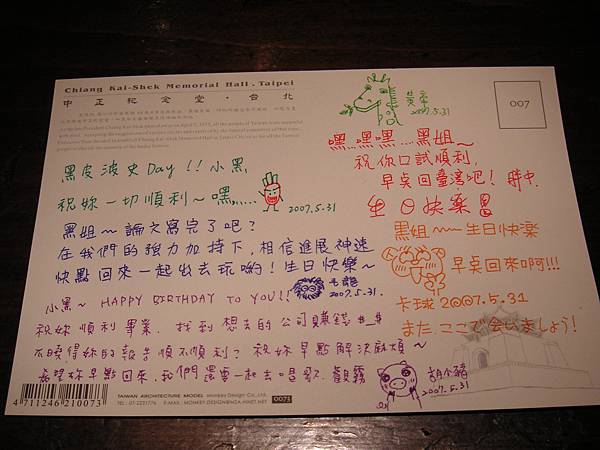 Chiang Kai-Shek Memorial Hall . Taipei
中正紀念堂・台北
007
黃帝
2007.5.31
黑皮波史Day!!小黑,
祝妳一切順利~嘿……
2007.5.31
嘿.嘿.嘿…黑姐~
祝你口試順利,
早點回臺灣吧!
生日快樂
黑姐~~論文寫完了吧?
在我們的強力加持下,相信進展神速
快點回來一起出去玩喲!生日快樂~
毛龍
2007.5.31.
黑姐~~生日快樂
早點回來啊!!!
卡球 2007.5.31
また、ここで会いましょう!
小黑~ HAPPY BIRTHDAY TO YOU!!
祝妳順利畢業,找到想去的公司賺錢#_#
不曉得妳的報告順不順利?祝妳早點解決麻煩~
希望妳早點回來,我們還要一起去唱歌、觀霧
胡小豬
2007.5.31
4 711246 210073
TAIWAN ARCHITECTURE MODEL Monkey Design Co.,Ltd.
0073